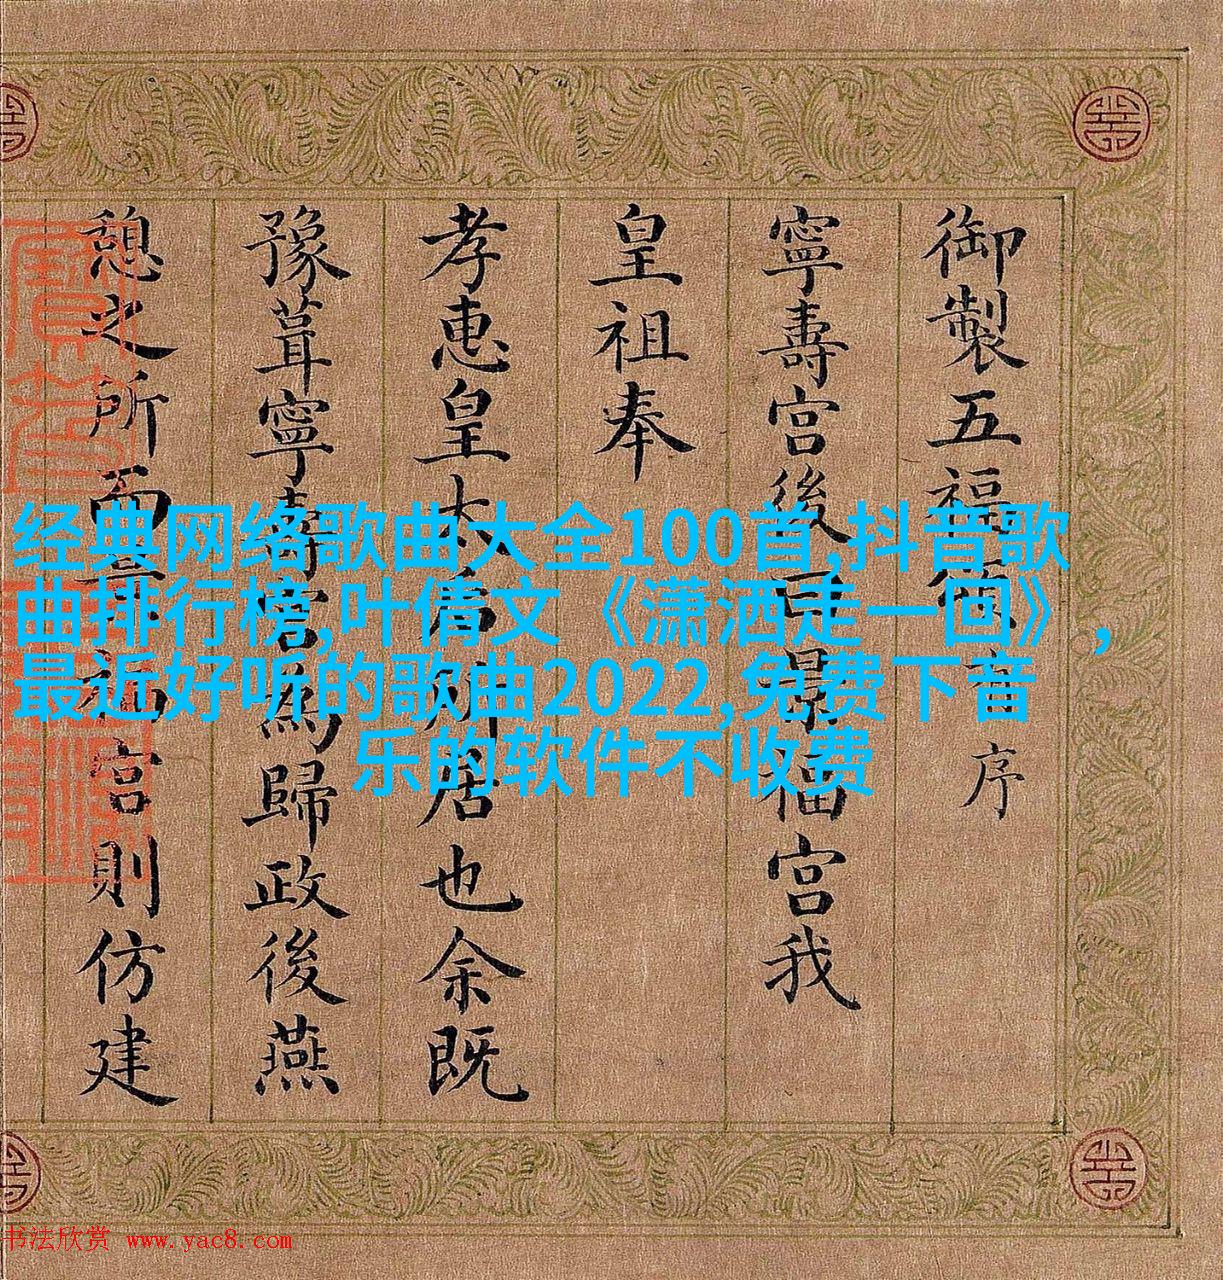 御製五福頌并序
寧壽宮後曰景福宮我
皇祖奉
孝惠皇太后所居也余既
豫葺寧壽宮為歸政後燕
憩之所而景福宮則仿建
经典网络歌曲大全100首,抖音歌
曲排行榜,叶倩文《潇洒走一回》,
最近好听的歌曲2022,免费下音
乐的软件不收费
书法欣赏 www.yac8.com